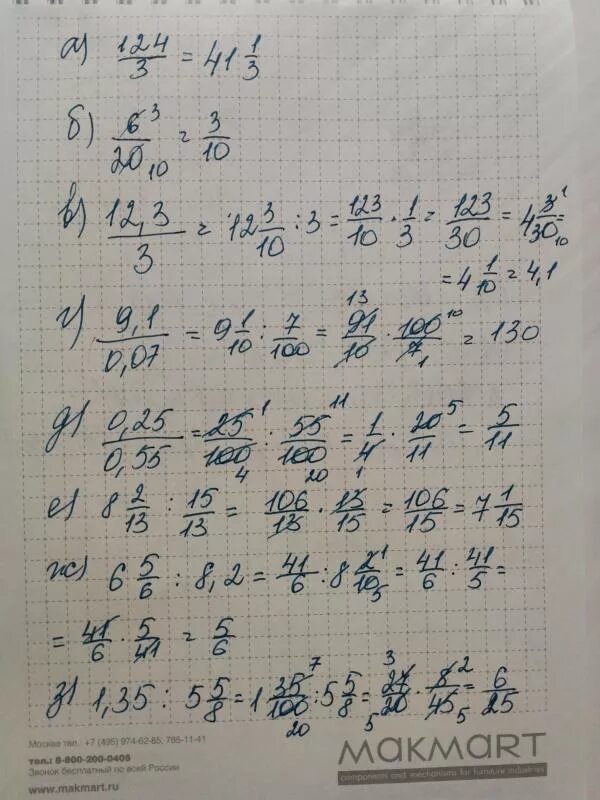 а) 124/3 = 41 1/3
б) 6 3/20 10 = 3/10
в) 12,3/3 = 12 3/10 : 3 = 123/10 · 1/3 = 123/30 = 4 3 1/30 10 =
= 4 1/10 = 4,1
г) 9,1/0,07 = 9 1/10 : 7/100 = 91 13/10 · 100 10/7 1 = 130
д) 0,25/0,55 = 25 1/100 4 : 55 11/100 20 = 1/4 1 · 20 5/11 = 5/11
е) 8 2/13 : 15/13 = 106/13 · 13/15 = 106/15 = 7 1/15
ж) 6 5/6 : 8,2 = 41/6 : 8 2 1/10 5 = 41/6 : 41/5 =
= 41/6 · 5/41 = 5/6
з) 1,35 : 5 5/8 = 1 35 7/100 20 : 5 5/8 = 27 3/20 5 · 8 2/45 5 = 6/25
Москва тел.: +7 (495) 974-62-85, 785-11-41
тел.: 8-800-200-0405
Звонок бесплатный по всей России
www.makmart.ru
MAKMART
components and mechanisms for furniture industries